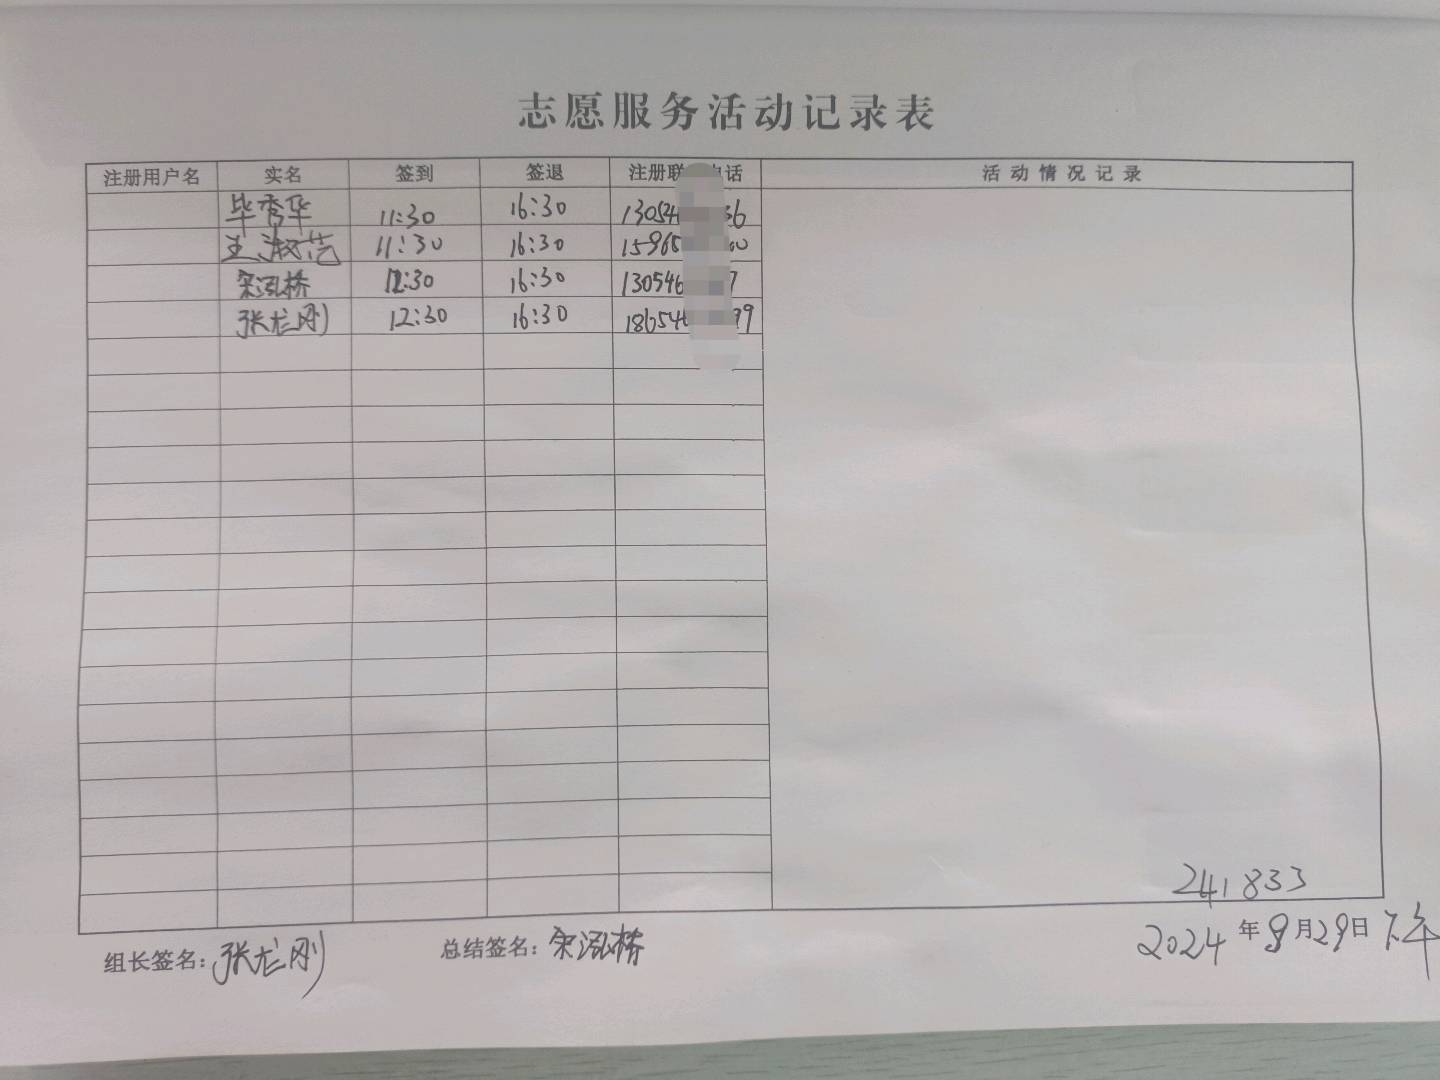 志愿服务活动记录表
注册用户名 实名 签到 签退 注册联 电话 活动情况记录
毕秀华 11:30 16:30 13054 36
王淑范 11:30 16:30 15965 00
宋泓桥 12:30 16:30 130546 7
张龙刚 12:30 16:30 186546 99
241833
组长签名：张龙刚 总结签名：宋泓桥 2024年9月29日下午